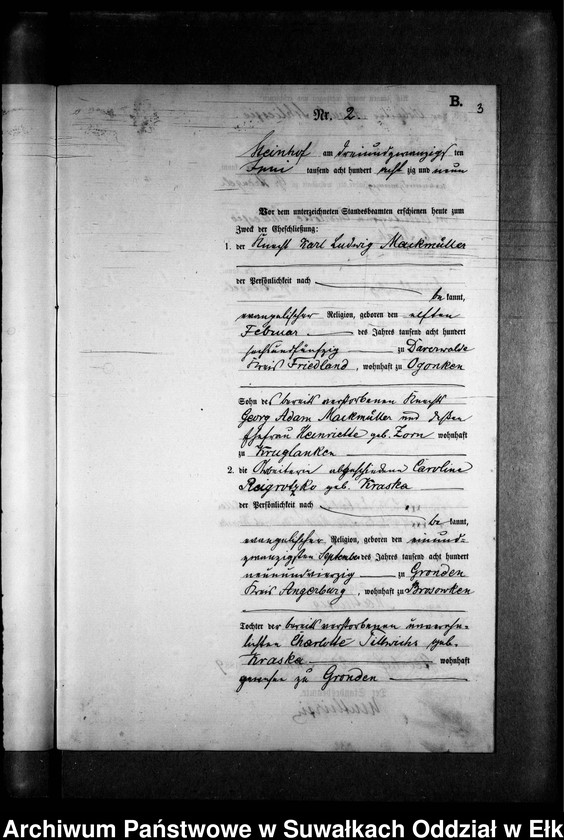 B.
3
Nr. 2.
Steinhof am dreiundzwanzigs ten
Juni tausend acht hundert acht zig und neun
Vor dem unterzeichneten Standesbeamten erschienen heute zum
Zweck der Eheschließung:
1. der Knecht Karl Ludwig Mackmüller
der Persönlichkeit nach
be kannt,
evangelischer Religion, geboren den elften
Februar des Jahres tausend acht hundert
sechsundfünfzig zu
Kreis Friedland, wohnhaft zu Ogonken
Sohn des bereits verstorbenen Knechts
Georg Adam Mackmüller und dessen
Ehefrau Heinriette geb. Zorn wohnhaft
zu Kruglanken
2. die Arbeiterin abgeschiedene Caroline
Reigrotzko geb. Kraska
der Persönlichkeit nach
be kannt,
evangelischer Religion, geboren den einund-
zwanzigsten September des Jahres tausend acht hundert
neunundvierzig zu Gronden
Kreis Angerburg, wohnhaft zu Brosowken
Tochter der bereits verstorbenen unverehe-
lichten Charlotte geb.
Kraska wohnhaft
gewesen zu Gronden
Archiwum Państwowe w Suwałkach Oddział w Ełk